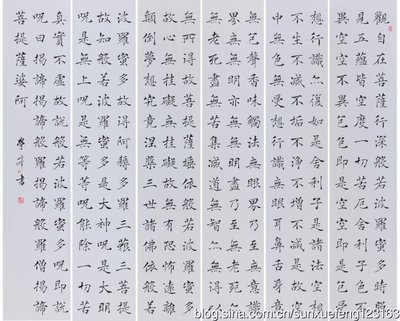 觀自在菩薩行深般若波羅蜜多時照
見五蘊皆空度一切苦厄舍利子色不
異空空不異色色即是空空即是色受
想行識亦復如是舍利子是諸法空相
不生不滅不垢不淨不增不減是故空
中無色無受想行識無眼耳鼻舌身意
無色聲香味觸法無眼界乃至無意識
界無無明亦無無明盡乃至無老死亦
無老死盡無苦集滅道無智亦無得以
無所得故菩提薩埵依般若波羅蜜多
故心無挂礙無挂礙故無有恐怖遠離
顛倒夢想究竟涅槃三世諸佛依般若
波羅蜜多故得阿耨多羅三藐三菩提
故知般若波羅蜜多是大神呪是大明
呪是無上呪是無等等呪能除一切苦
真實不虛故說般若波羅蜜多呪即說
呪曰揭諦揭諦般羅揭諦般羅僧揭諦
菩提薩婆訶
blog.sina.com.cn/sunxuefeng123163